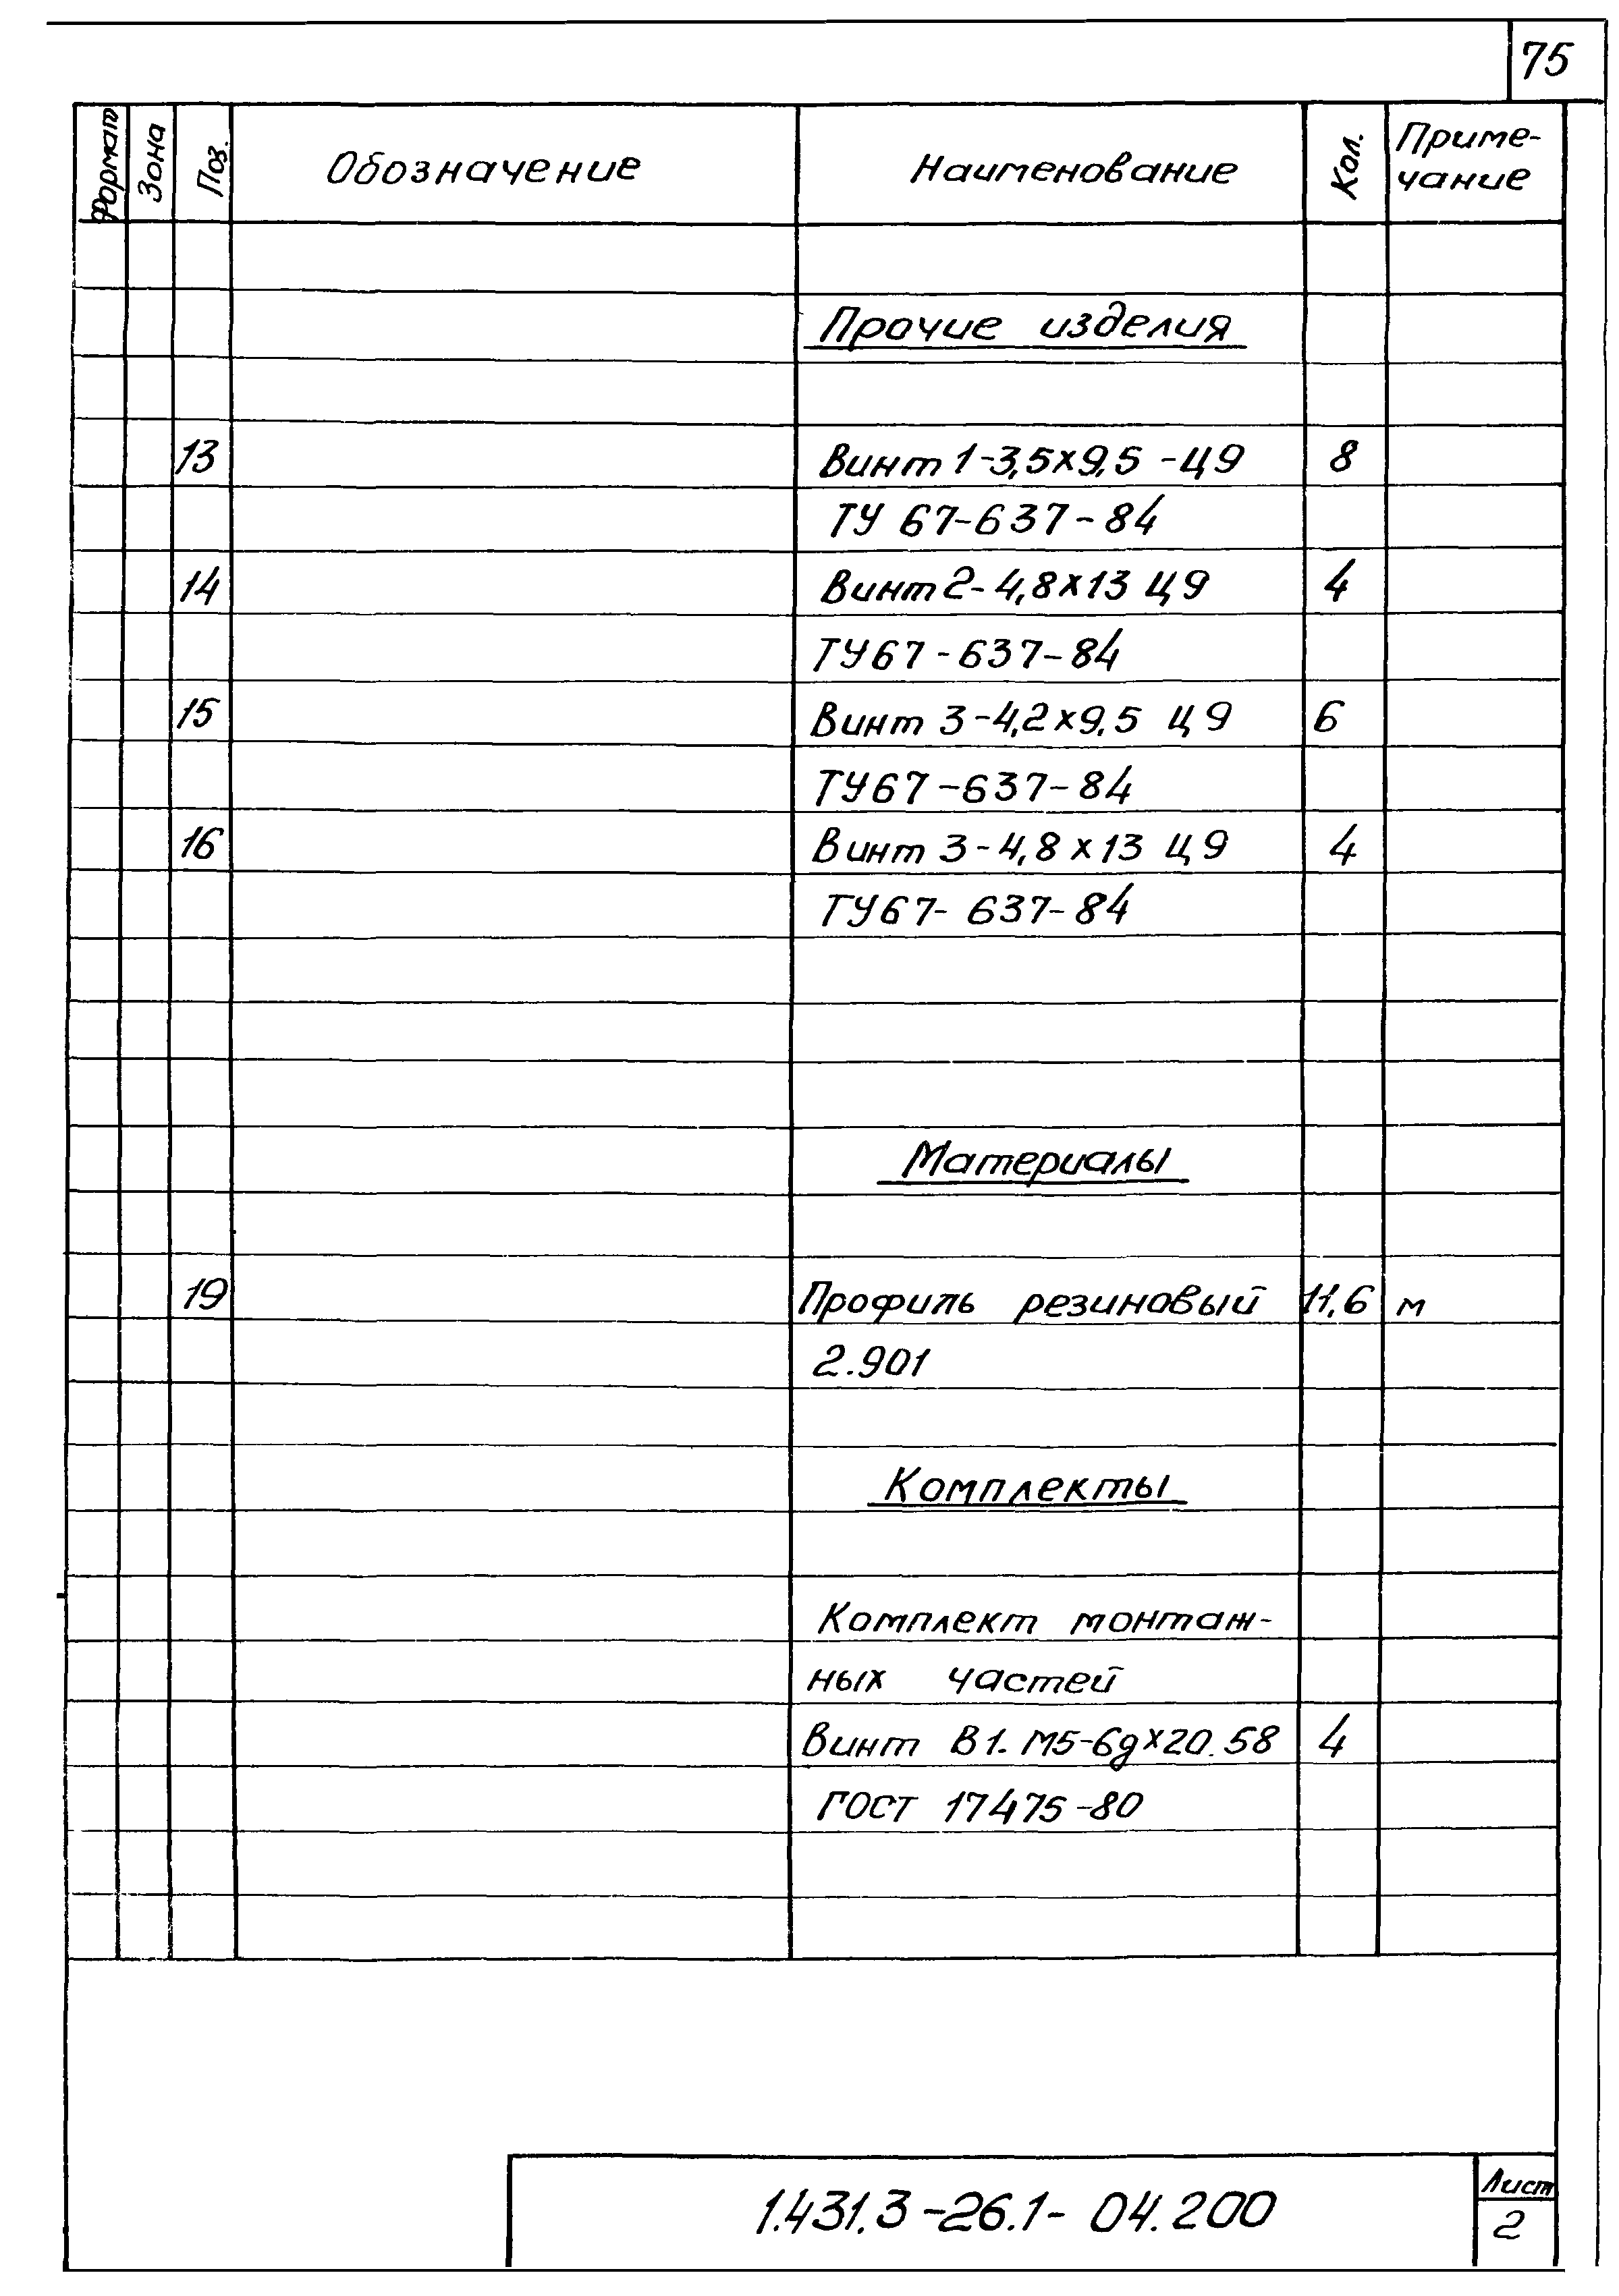 75
Формат Зона Поз. Обозначение Наименование Кол. Приме-
чание
Прочие изделия
13 Винт 1-3,5х9,5 -Ц9 8
ТУ 67-637-84
14 Винт 2-4,8х13 Ц9 4
ТУ67-637-84
15 Винт 3-4,2х9,5 Ц9 6
ТУ67-637-84
16 Винт 3-4,8х13 Ц9 4
ТУ67-637-84
Материалы
19 Профиль резиновый 11,6 м
2.901
Комплекты
Комплект монтаж-
ных частей
Винт В1. М5-6gх20.58 4
ГОСТ 17475-80
1.431.3-26.1-04.200
Лист
2